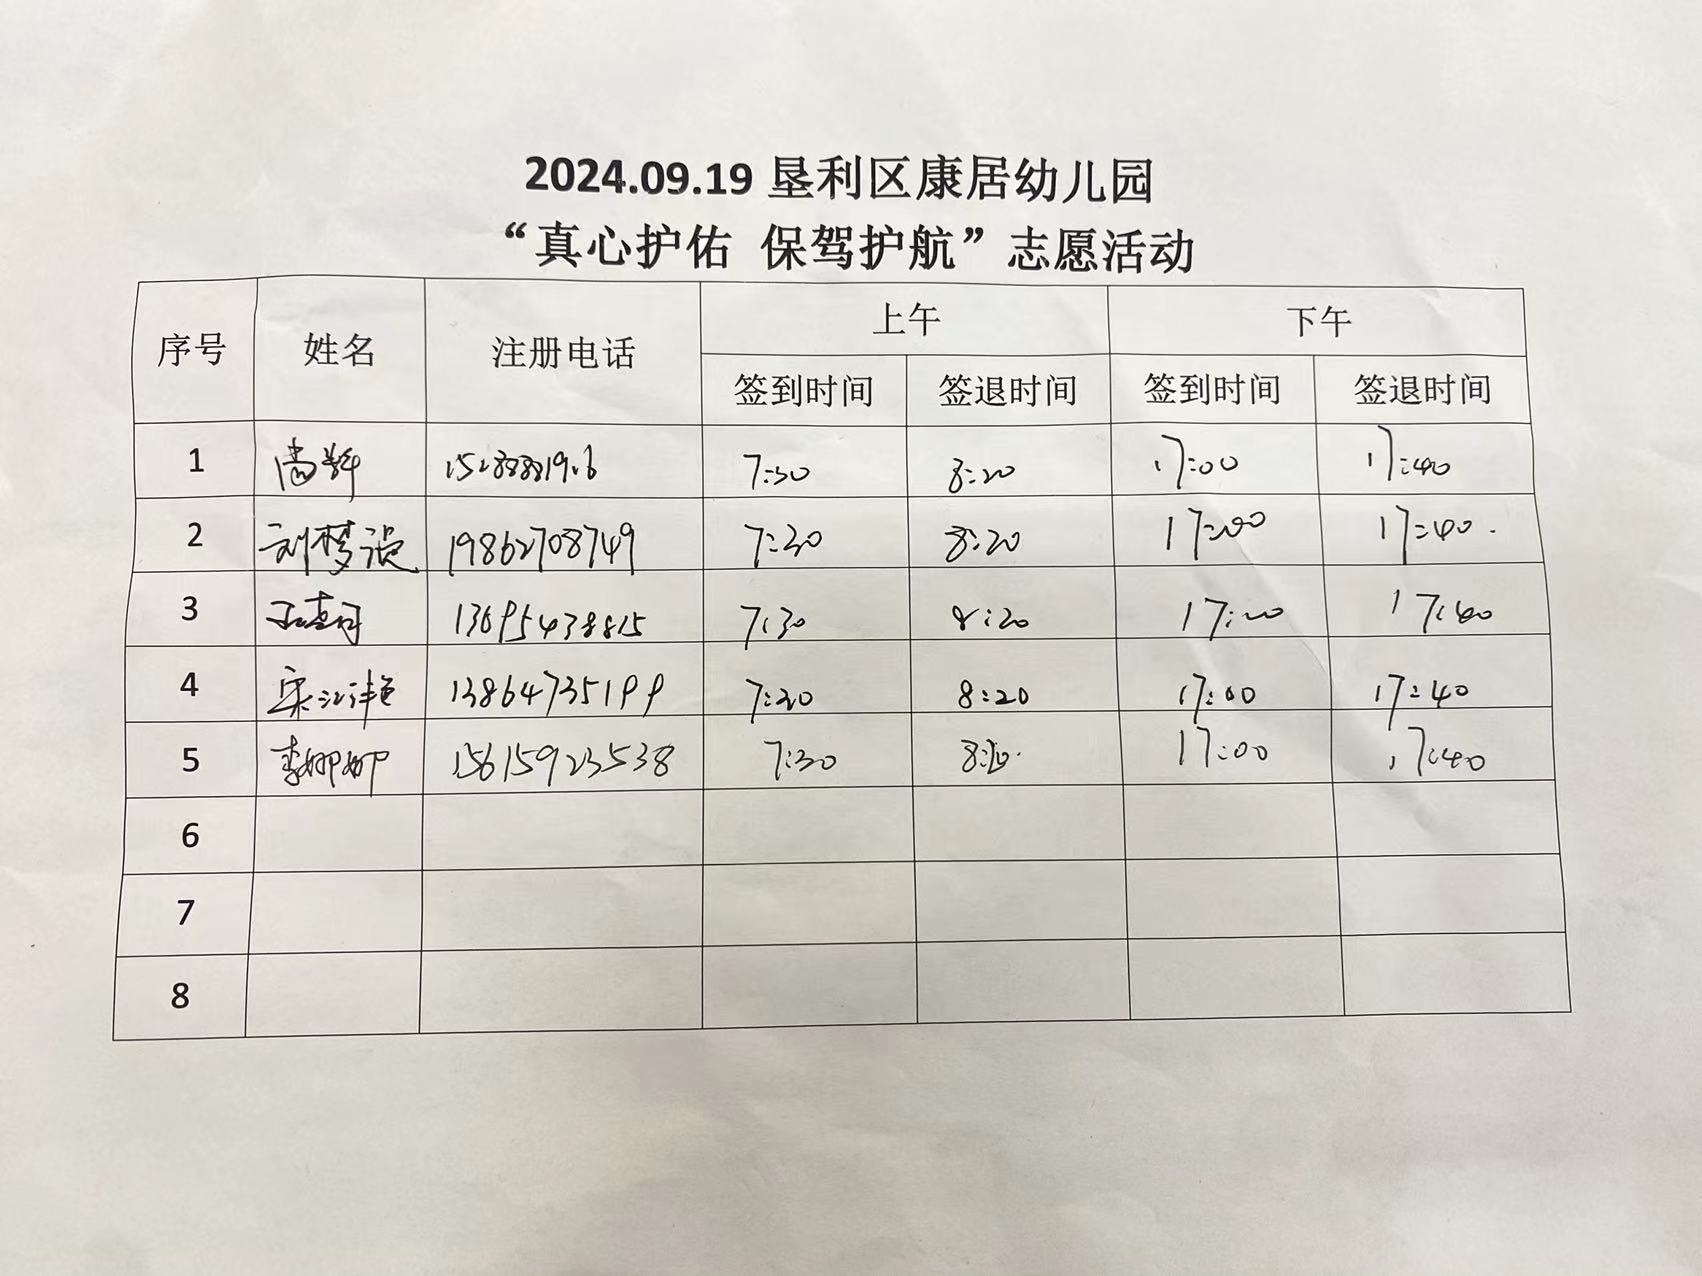 2024.09.19 垦利区康居幼儿园
“真心护佑 保驾护航”志愿活动
序号 姓名 注册电话 上午 下午
签到时间 签退时间 签到时间 签退时间
1 7:30 8:20 17:00 17:40
2 刘梦 19862708749 7:30 8:20 17:00 17:40.
3 13695438815 7:30 8:20 17:00 17:40
4 宋江艳 13864735199 7:30 8:20 17:00 17:40
5 李娜娜 15615923538 7:30 17:00 17:40
6
7
8